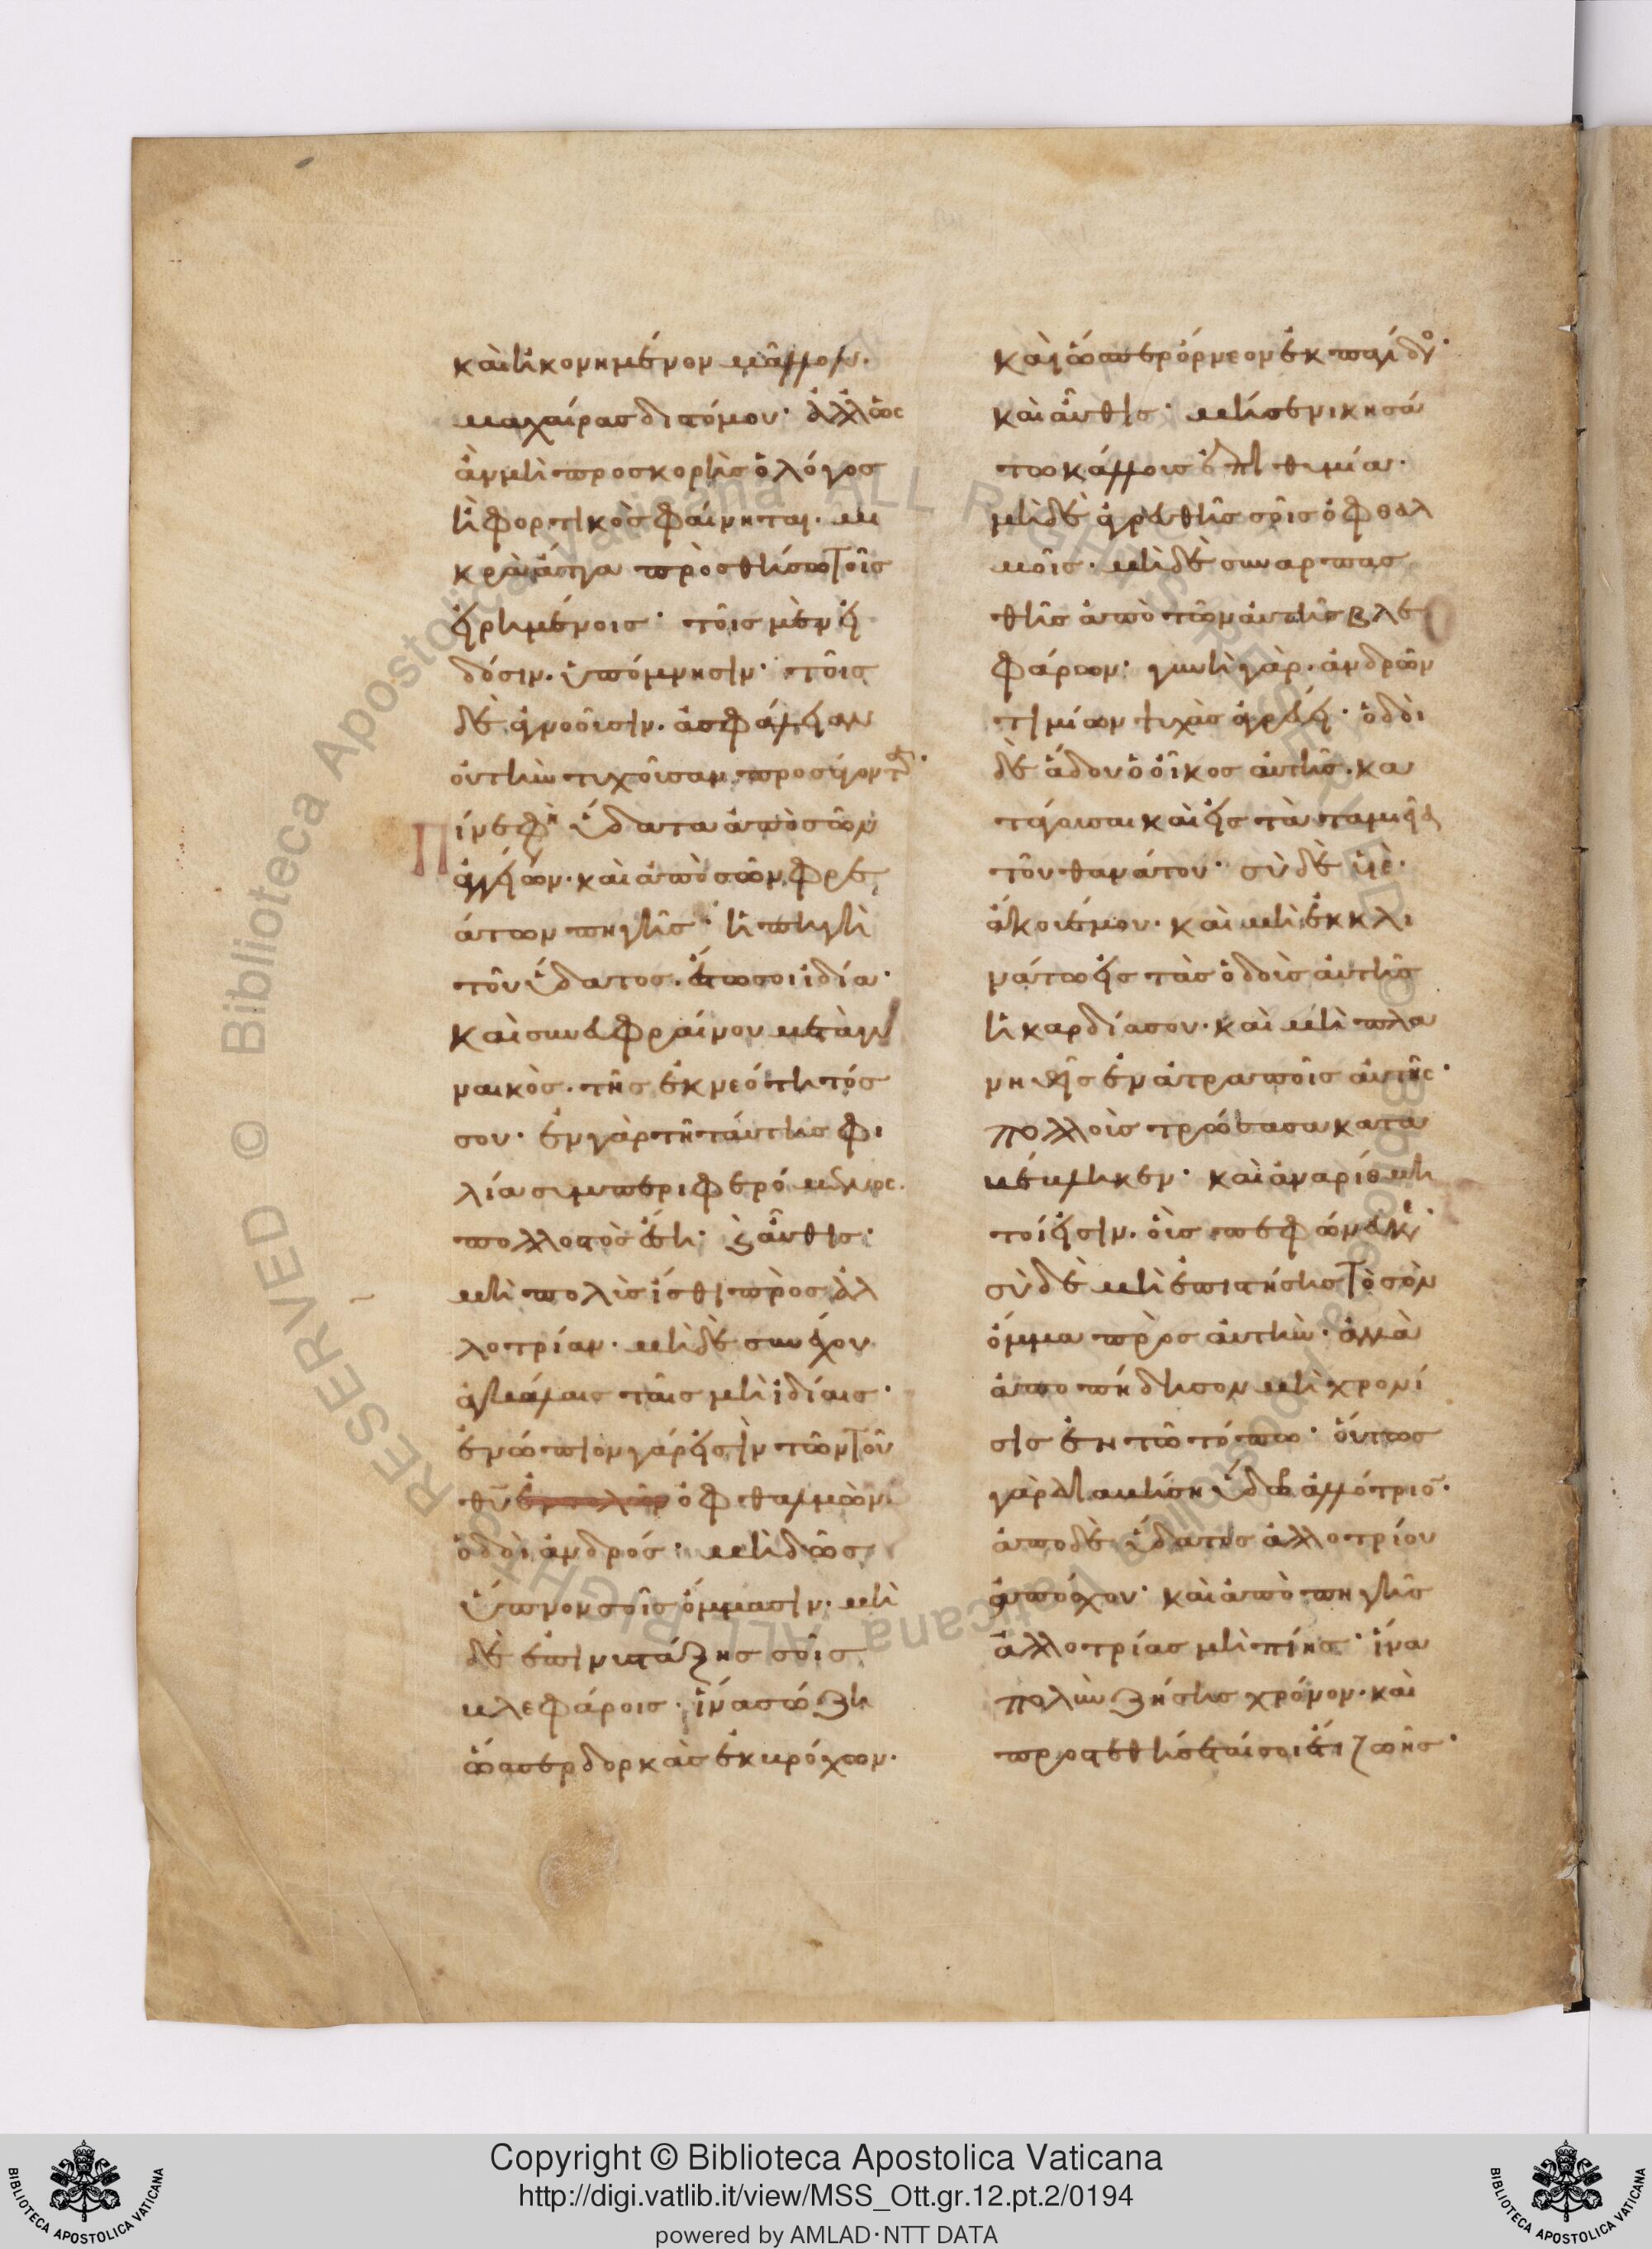 καὶ ἠκονημένον μᾶλλον.
μαχαίρας διστόμου· ἀλλ' ὡς
ἂν μὴ προσκορὴς ὁ λόγος
ἢ φορτικὸς φαίνηται. μι
κρὰ ἄττα προσθήσω τοῖς
εἰρημένοις· τοῖς μὲν εἰ
δόσιν. ὑπόμνησιν· τοῖς
δὲ ἀγνοοῦσιν. ἀσφάλειαν
οὐ τὴν τυχοῦσαν προσάγοντα·
Πίνε φησὶν ὕδατα ἀπὸ σῶν
ἀγγείων. καὶ ἀπὸ σῶν φρε
άτων πηγῆς· ἡ πηγὴ
τοῦ ὕδατος. ἔστω σοι ἰδία·
καὶ συνευφραίνου μετὰ γυ
ναικὸς. τῆς ἐκ νεότητός
σου· ἐν γὰρ τῇ ταύτης φι
λίᾳ συμπεριφερόμενος.
πολλοστὸς ἔσῃ· καὶ αὖθις·
μὴ πολὺς ἴσθι πρὸς ἀλ
λοτρίαν. μὴ δὲ συνέχου
ἀγκάλαις ταῖς μὴ ἰδίαις·
ἐνώπιον γάρ εἰσιν τῶν τοῦ
θυ ὀφθαλμῶν
ὁδοὶ ἀνδρός· μὴ δῶς
ὕπνον σοῖς ὄμμασιν. μὴ
δὲ ἐπινυστάξῃς σοῖς
βλεφάροις· ἵνα σώζῃ
ὥσπερ δορκὰς ἐκ βρόχων.
καὶ ὥσπερ ὄρνεον ἐκ παγίδος·
καὶ αὖθις· μή σε νικησά
τω κάλλους ἐπιθυμία.
μὴ δὲ ἀγρευθῇς σοῖς ὀφθαλ
μοῖς. μὴ δὲ συναρπασ
θῇς ἀπὸ τῶν αὐτῆς βλε
φάρων· γυνὴ γὰρ. ἀνδρῶν
τιμίων ψυχὰς ἀγρεύει· ὁδοὶ
δὲ ᾅδου ὁ οἶκος αὐτῆς. κα
τάγουσαι καὶ εἰς τὰ ταμιεῖα
τοῦ θανάτου· σὺ δὲ υἱὲ.
ἄκουέ μου. καὶ μὴ ἐκκλι
νάτω εἰς τὰς ὁδοὺς αὐτῆς
ἡ καρδία σου. καὶ μὴ πλα
νηθῇς ἐν ἀτραποῖς αὐτῆς·
πολλοὺς τρώσασα κατα
βέβληκεν· καὶ ἀναρίθμη
τοί εἰσιν. οὓς πεφόνευκε·
σὺ δὲ μὴ ἐπιστήσῃς τὸ σὸν
ὄμμα πρὸς αὐτὴν· ἀλλὰ
ἀποπήδησον μὴ χρονί
σῃς ἐν τῷ τόπῳ· οὕτως
γὰρ διαβήσῃ ὕδωρ ἀλλότριον·
ἀπὸ δὲ ὕδατος ἀλλοτρίου
ἀπόσχου· καὶ ἀπὸ πηγῆς
ἀλλοτρίας μὴ πίῃς· ἵνα
πολὺν ζήσῃς χρόνον. καὶ
προστεθήσεταί σοι ἔτι ζωῆς·
Copyright © Biblioteca Apostolica Vaticana
http://digi.vatlib.it/view/MSS_Ott.gr.12.pt.2/0194
powered by AMLAD·NTT DATA